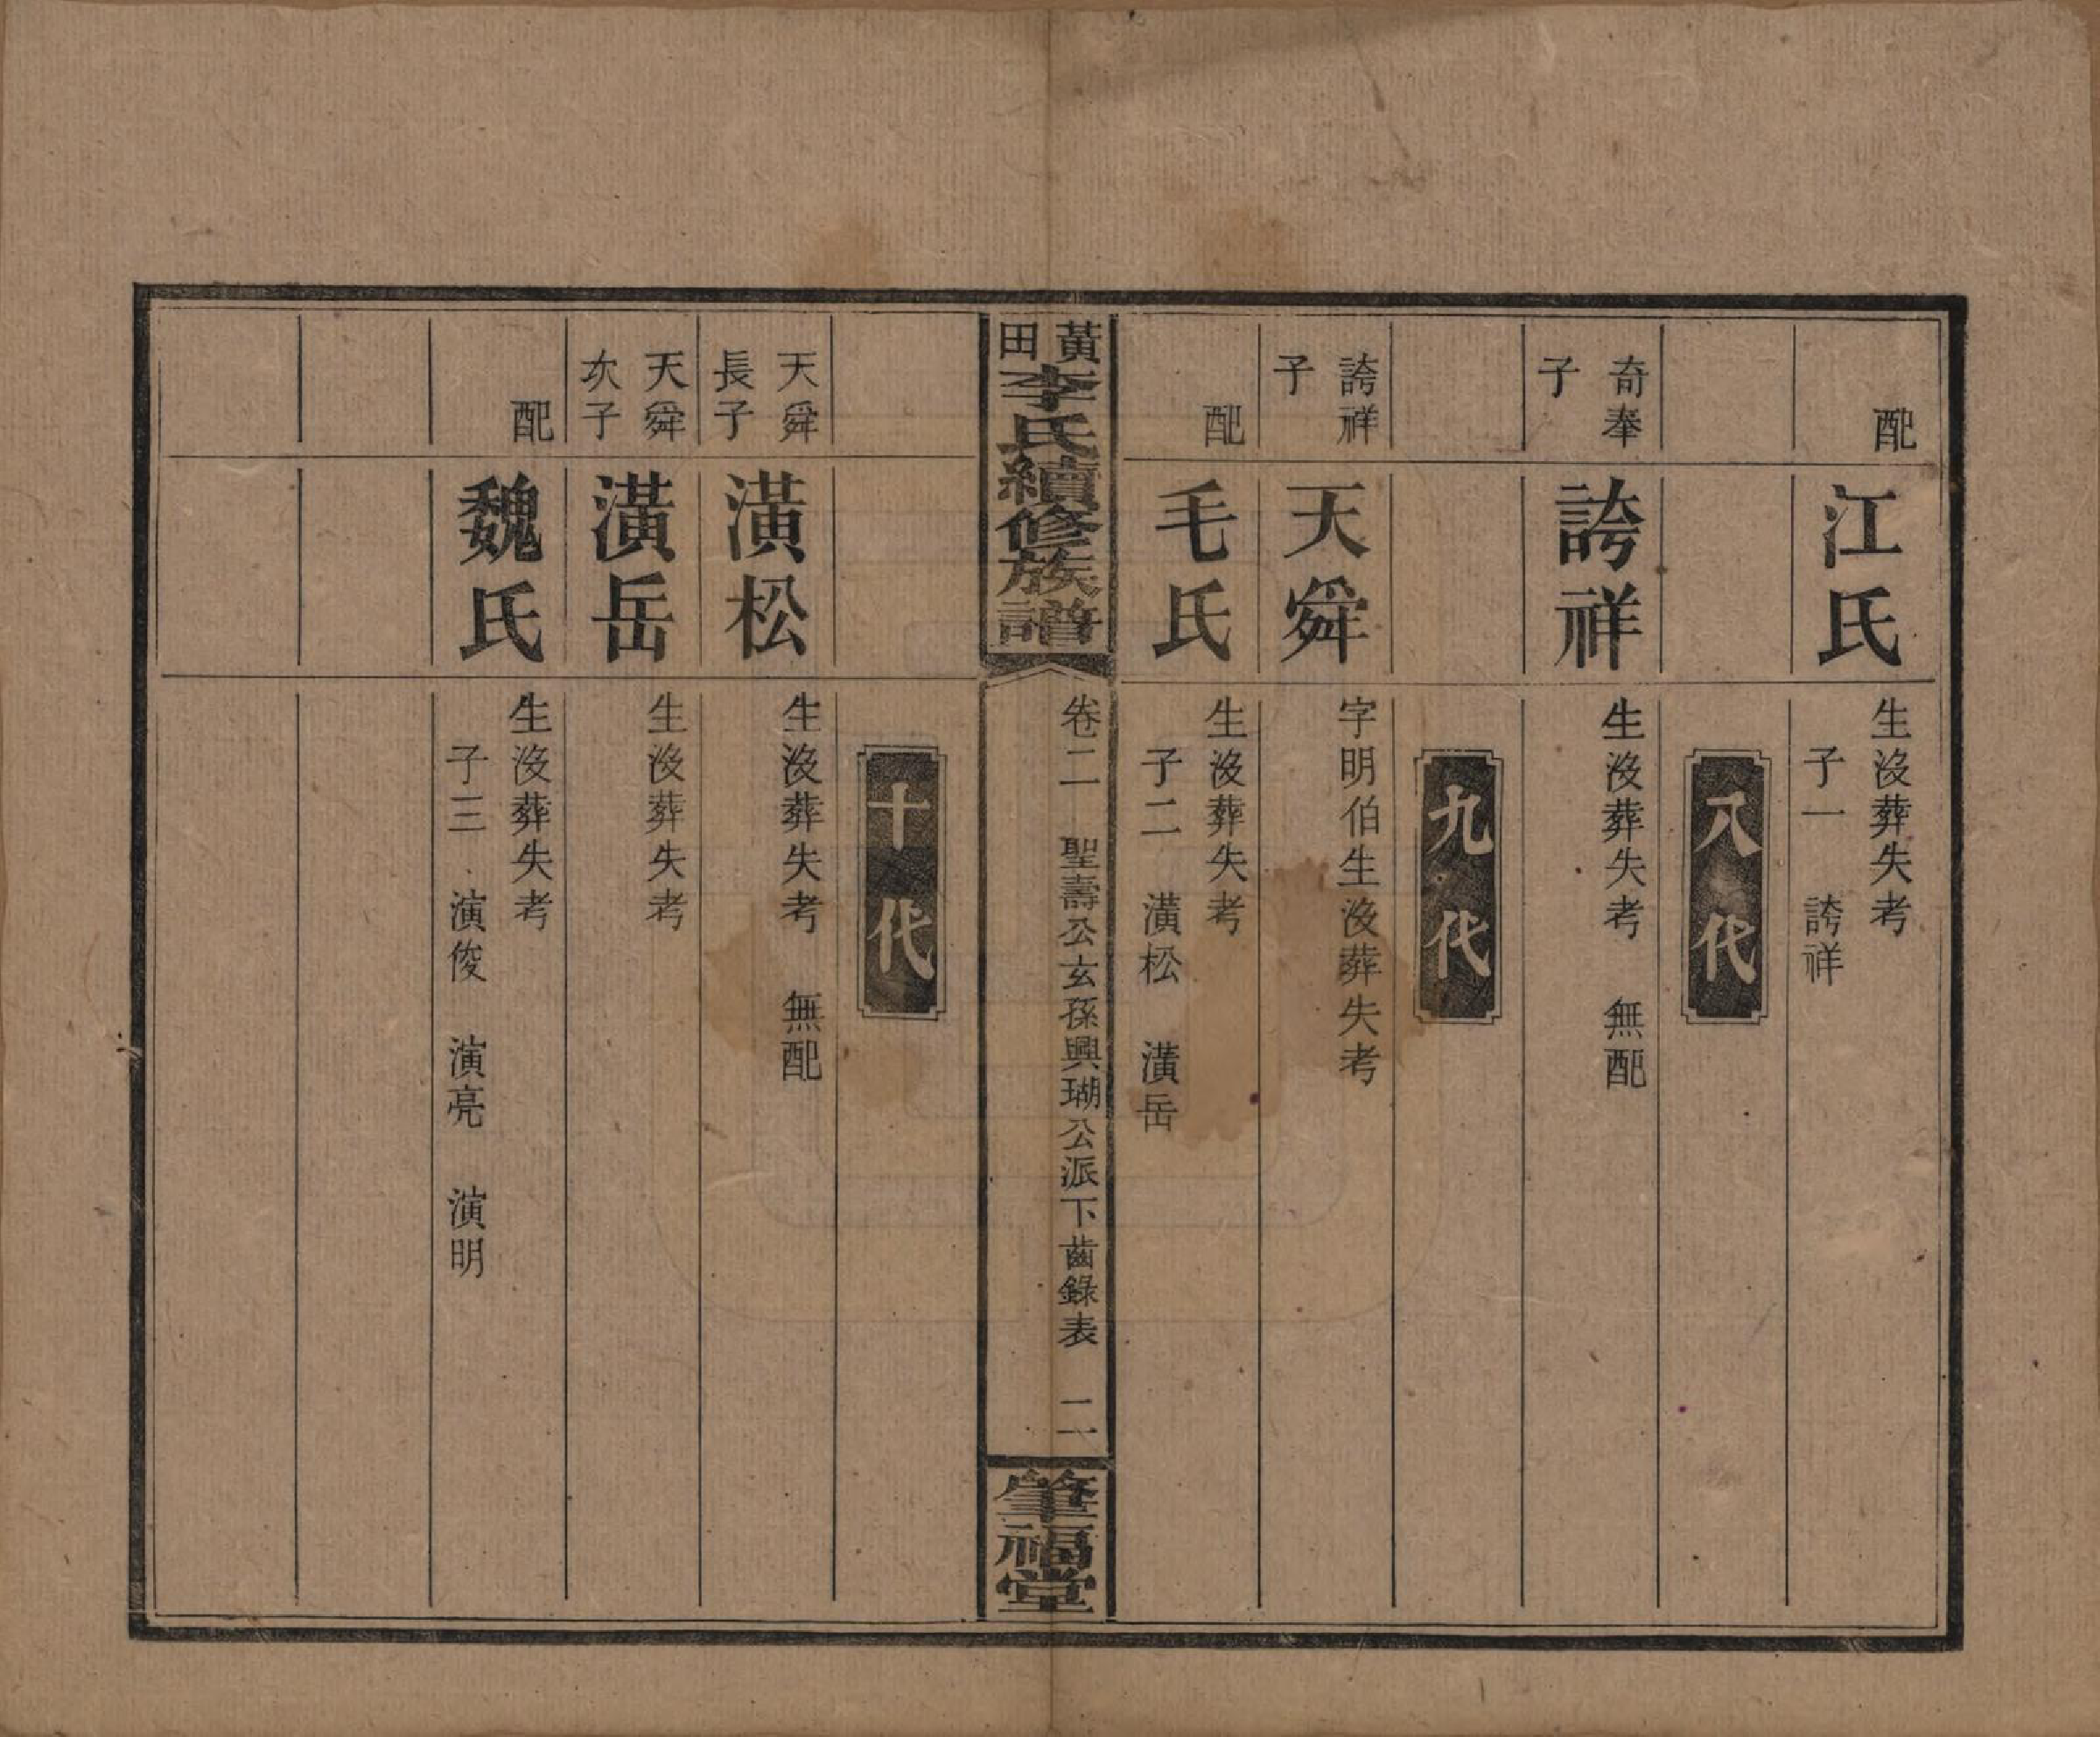 配
江氏
生没葬失考
子一　誇祥
八代
奇奉
子
誇祥
生没葬失考　無配
九代
誇祥
子
天舜
字明伯生没葬失考
配
毛氏
生没葬失考
子二　潢松　潢岳
黃田李氏續修族譜
卷二　聖壽公玄孫興瑚公派下齒錄表　二
肇福堂
十代
天舜
長子
潢松
生没葬失考　無配
天舜
次子
潢岳
生没葬失考
配
魏氏
生没葬失考
子三　演俊　演亮　演明